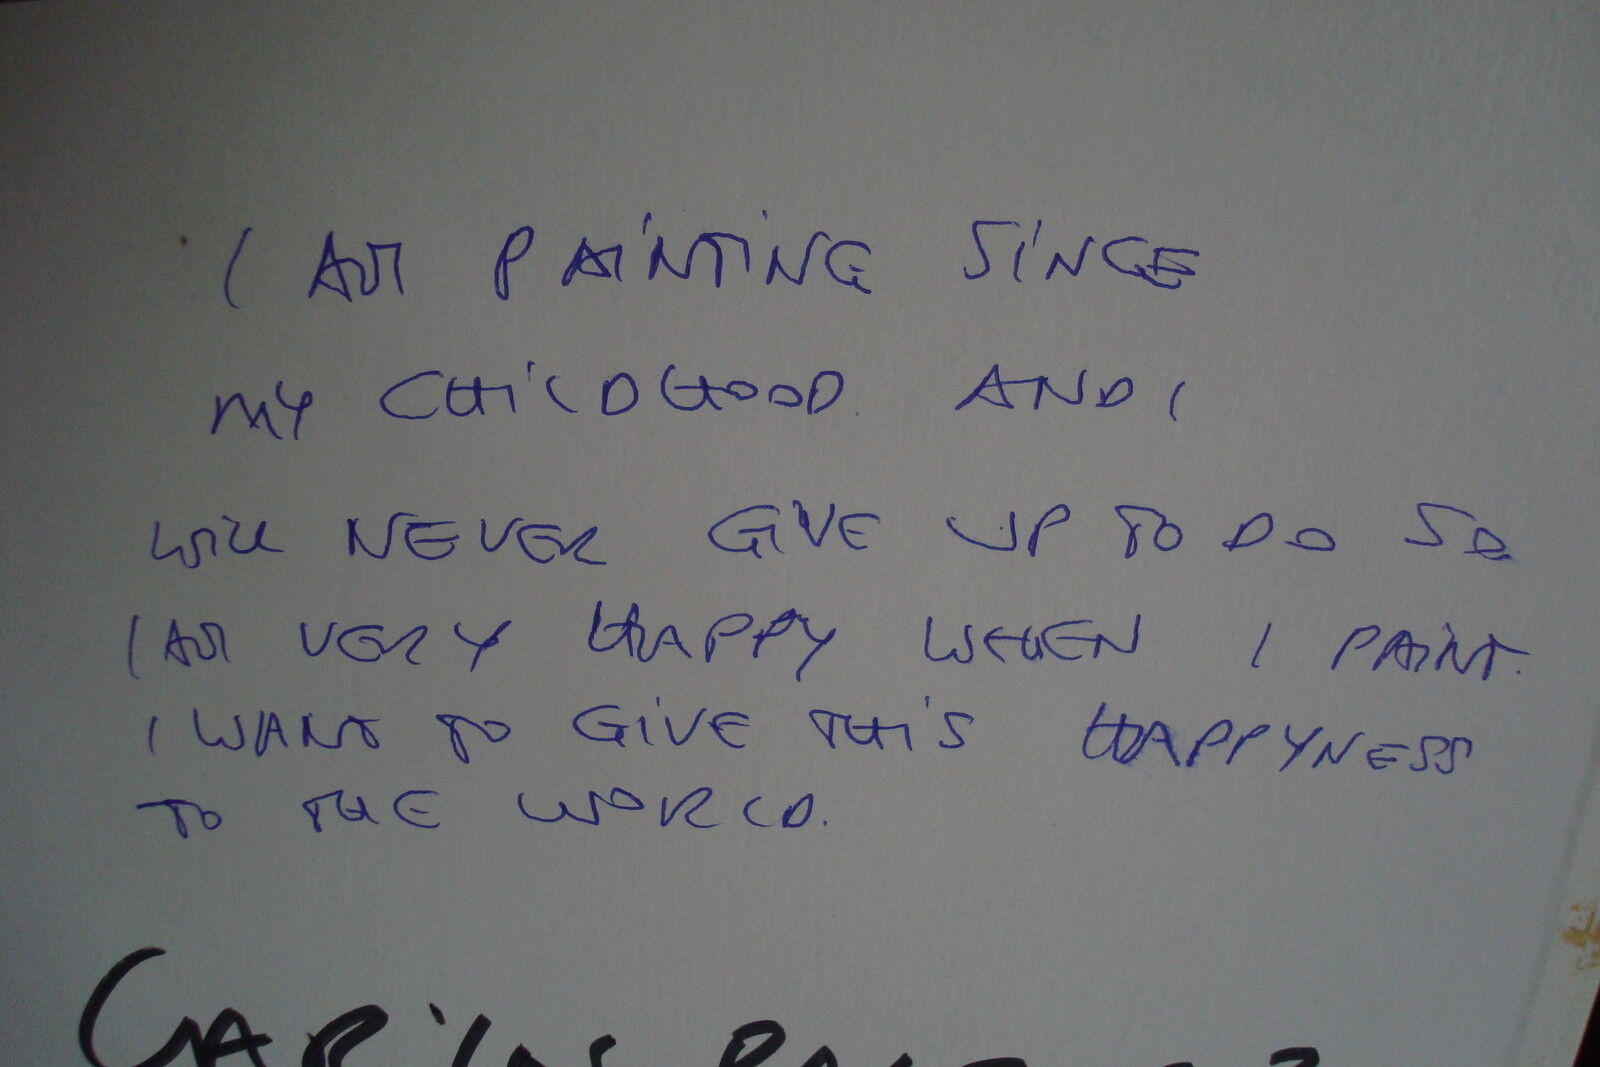 I AM PAINTING SINCE
MY CHILDHOOD. AND I
WILL NEVER GIVE UP TO DO SO
I AM VERY HAPPY WHEN I PAINT.
I WANT TO GIVE THIS HAPPYNESS
TO THE WORLD.